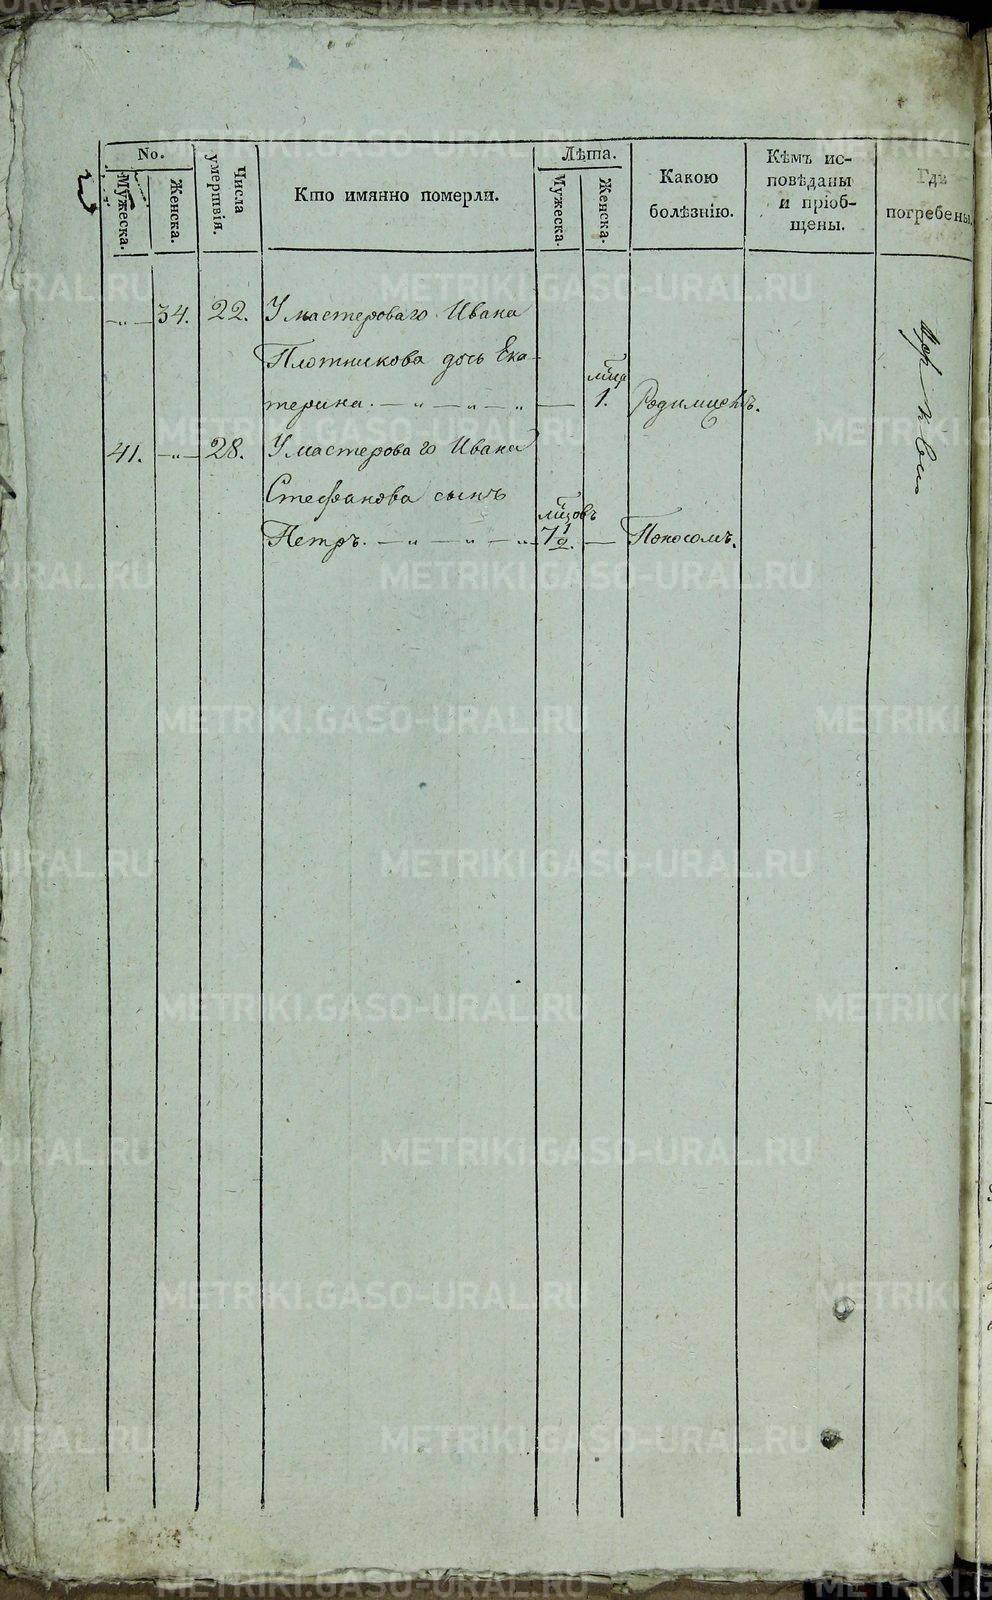 No.
Мужеска.
Женска.
Числа умертвія.
Кто имянно померли.
Лѣта.
Мужеска.
Женска.
Какою болѣзнію.
Кѣмъ ис-
повѣданы
и пріоб-
щены.
Гдѣ
погребены.
„ 34. 22. У мастероваго Ивана
Плотникова дочь Ека-
мца
терина. — „ — „ — „ — 1. Родимцемъ.
41. — „ — 28. У мастероваго Ивана
Стефанова сынъ
мцовъ
Петръ. — „ — „ — „ 7 1/2. — Поносомъ.
METRIKI.GASO-URAL.RU